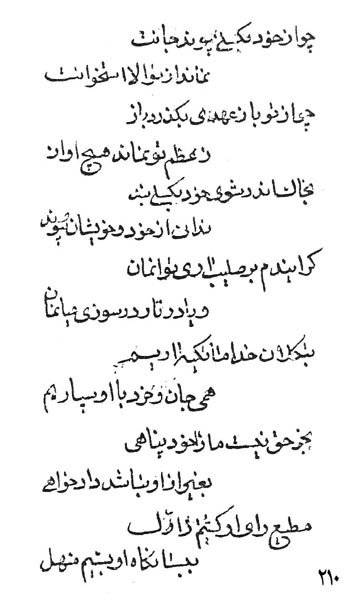 چو از خود بگسلی پیوند جانت
نماند از تو الا استخوانت
چو از تو باز عهدی بگذرد باز
ز عظم تو نماند هیچ آواز
بخاک اندر شوی خود بگسلی بند
ندانی از خود و خویشان پیوند
کرا بندم بر صلیب اری توانمان
و یا در نار در سوزی میانمان
خدا ما تکیه داریم
همی جان و خرد با او سپاریم
بجز حق نیست ما را خود پناهی
بغیر از او نباشد دادخواهی
مطیع رای او کشتیم ز اول
او منهل
۲۱۰